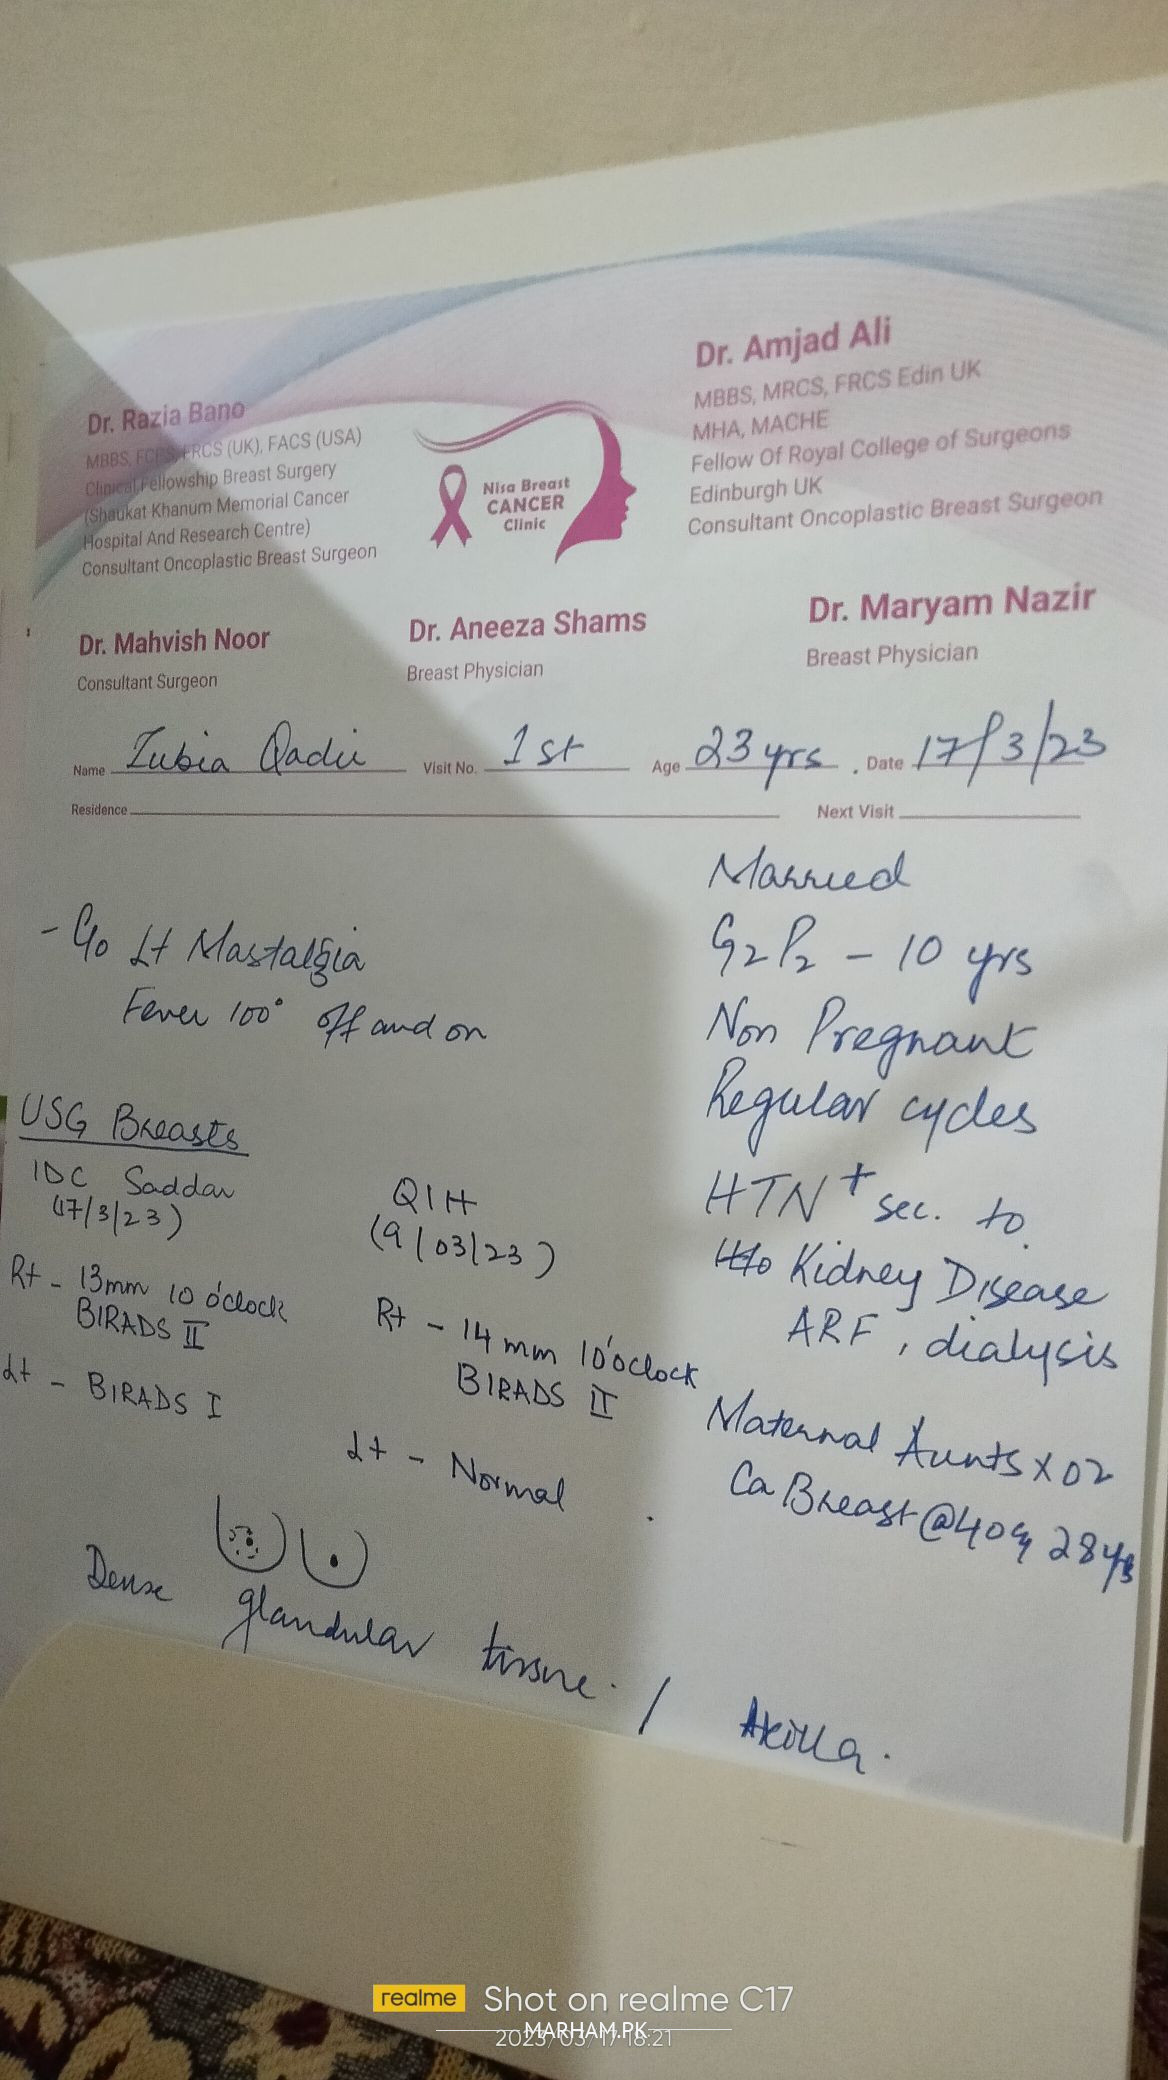 Dr. Razia Bano
MBBS, FCPS, FRCS (UK), FACS (USA)
Clinical Fellowship Breast Surgery
(Shaukat Khanum Memorial Cancer
Hospital And Research Centre)
Consultant Oncoplastic Breast Surgeon
Nisa Breast
CANCER
Clinic
Dr. Amjad Ali
MBBS, MRCS, FRCS Edin UK
MHA, MACHE
Fellow Of Royal College of Surgeons
Edinburgh UK
Consultant Oncoplastic Breast Surgeon
Dr. Mahvish Noor
Consultant Surgeon
Dr. Aneeza Shams
Breast Physician
Dr. Maryam Nazir
Breast Physician
Name Zubia Qadir Visit No. 1st Age 23 yrs . Date 17/3/23
Residence Next Visit
- C/o Lt Mastalgia
Fever 100° off and on
USG Breasts
IDC Saddar
(17/3/23)
Rt - 13mm 10 o'clock
BIRADS II
Lt - BIRADS I
QIH
(9/03/23)
Rt - 14 mm 10 o'clock
BIRADS II
Lt - Normal
Dense glandular tissue. / Axilla.
Married
G2P2 - 10 yrs
Non Pregnant
Regular cycles
HTN + sec. to
Kidney Disease
ARF, dialysis
Maternal Aunts x 02
Ca Breast @ 40 & 28 yrs
realme Shot on realme C17
MARHAM.PK
2023/03/17 18:21